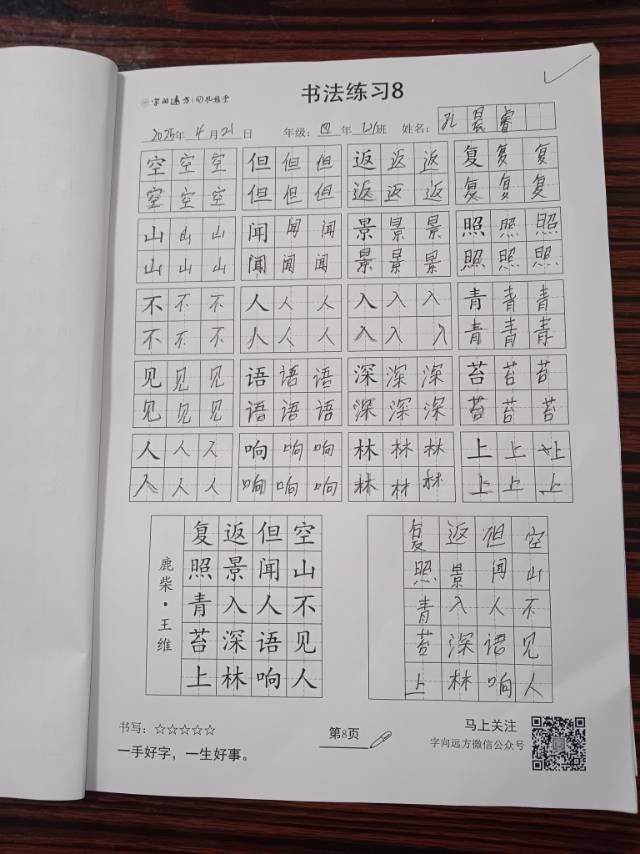 书法练习8
2025年4月21日 年级：四年 班 姓名：孔
空空空 但但但 返返返 复复复
空空空 但但但 返返返 复复复
山山山 闻闻闻 景景景 照照照
山山山 闻闻闻 景景景 照照照
不不不 人人人 入入入 青青青
不不不 人人人 入入入 青青青
见见见 语语语 深深深 苔苔苔
见见见 语语语 深深深 苔苔苔
人人人 响响响 林林林 上上上
人人人 响响响 林林林 上上上
鹿柴·王维
空山不见人
但闻人语响
返景入深林
复照青苔上
空山不见人
但闻人语响
返景入深林
复照青苔上
书写：☆☆☆☆☆
一手好字，一生好事。
第8页
马上关注
字向远方微信公众号